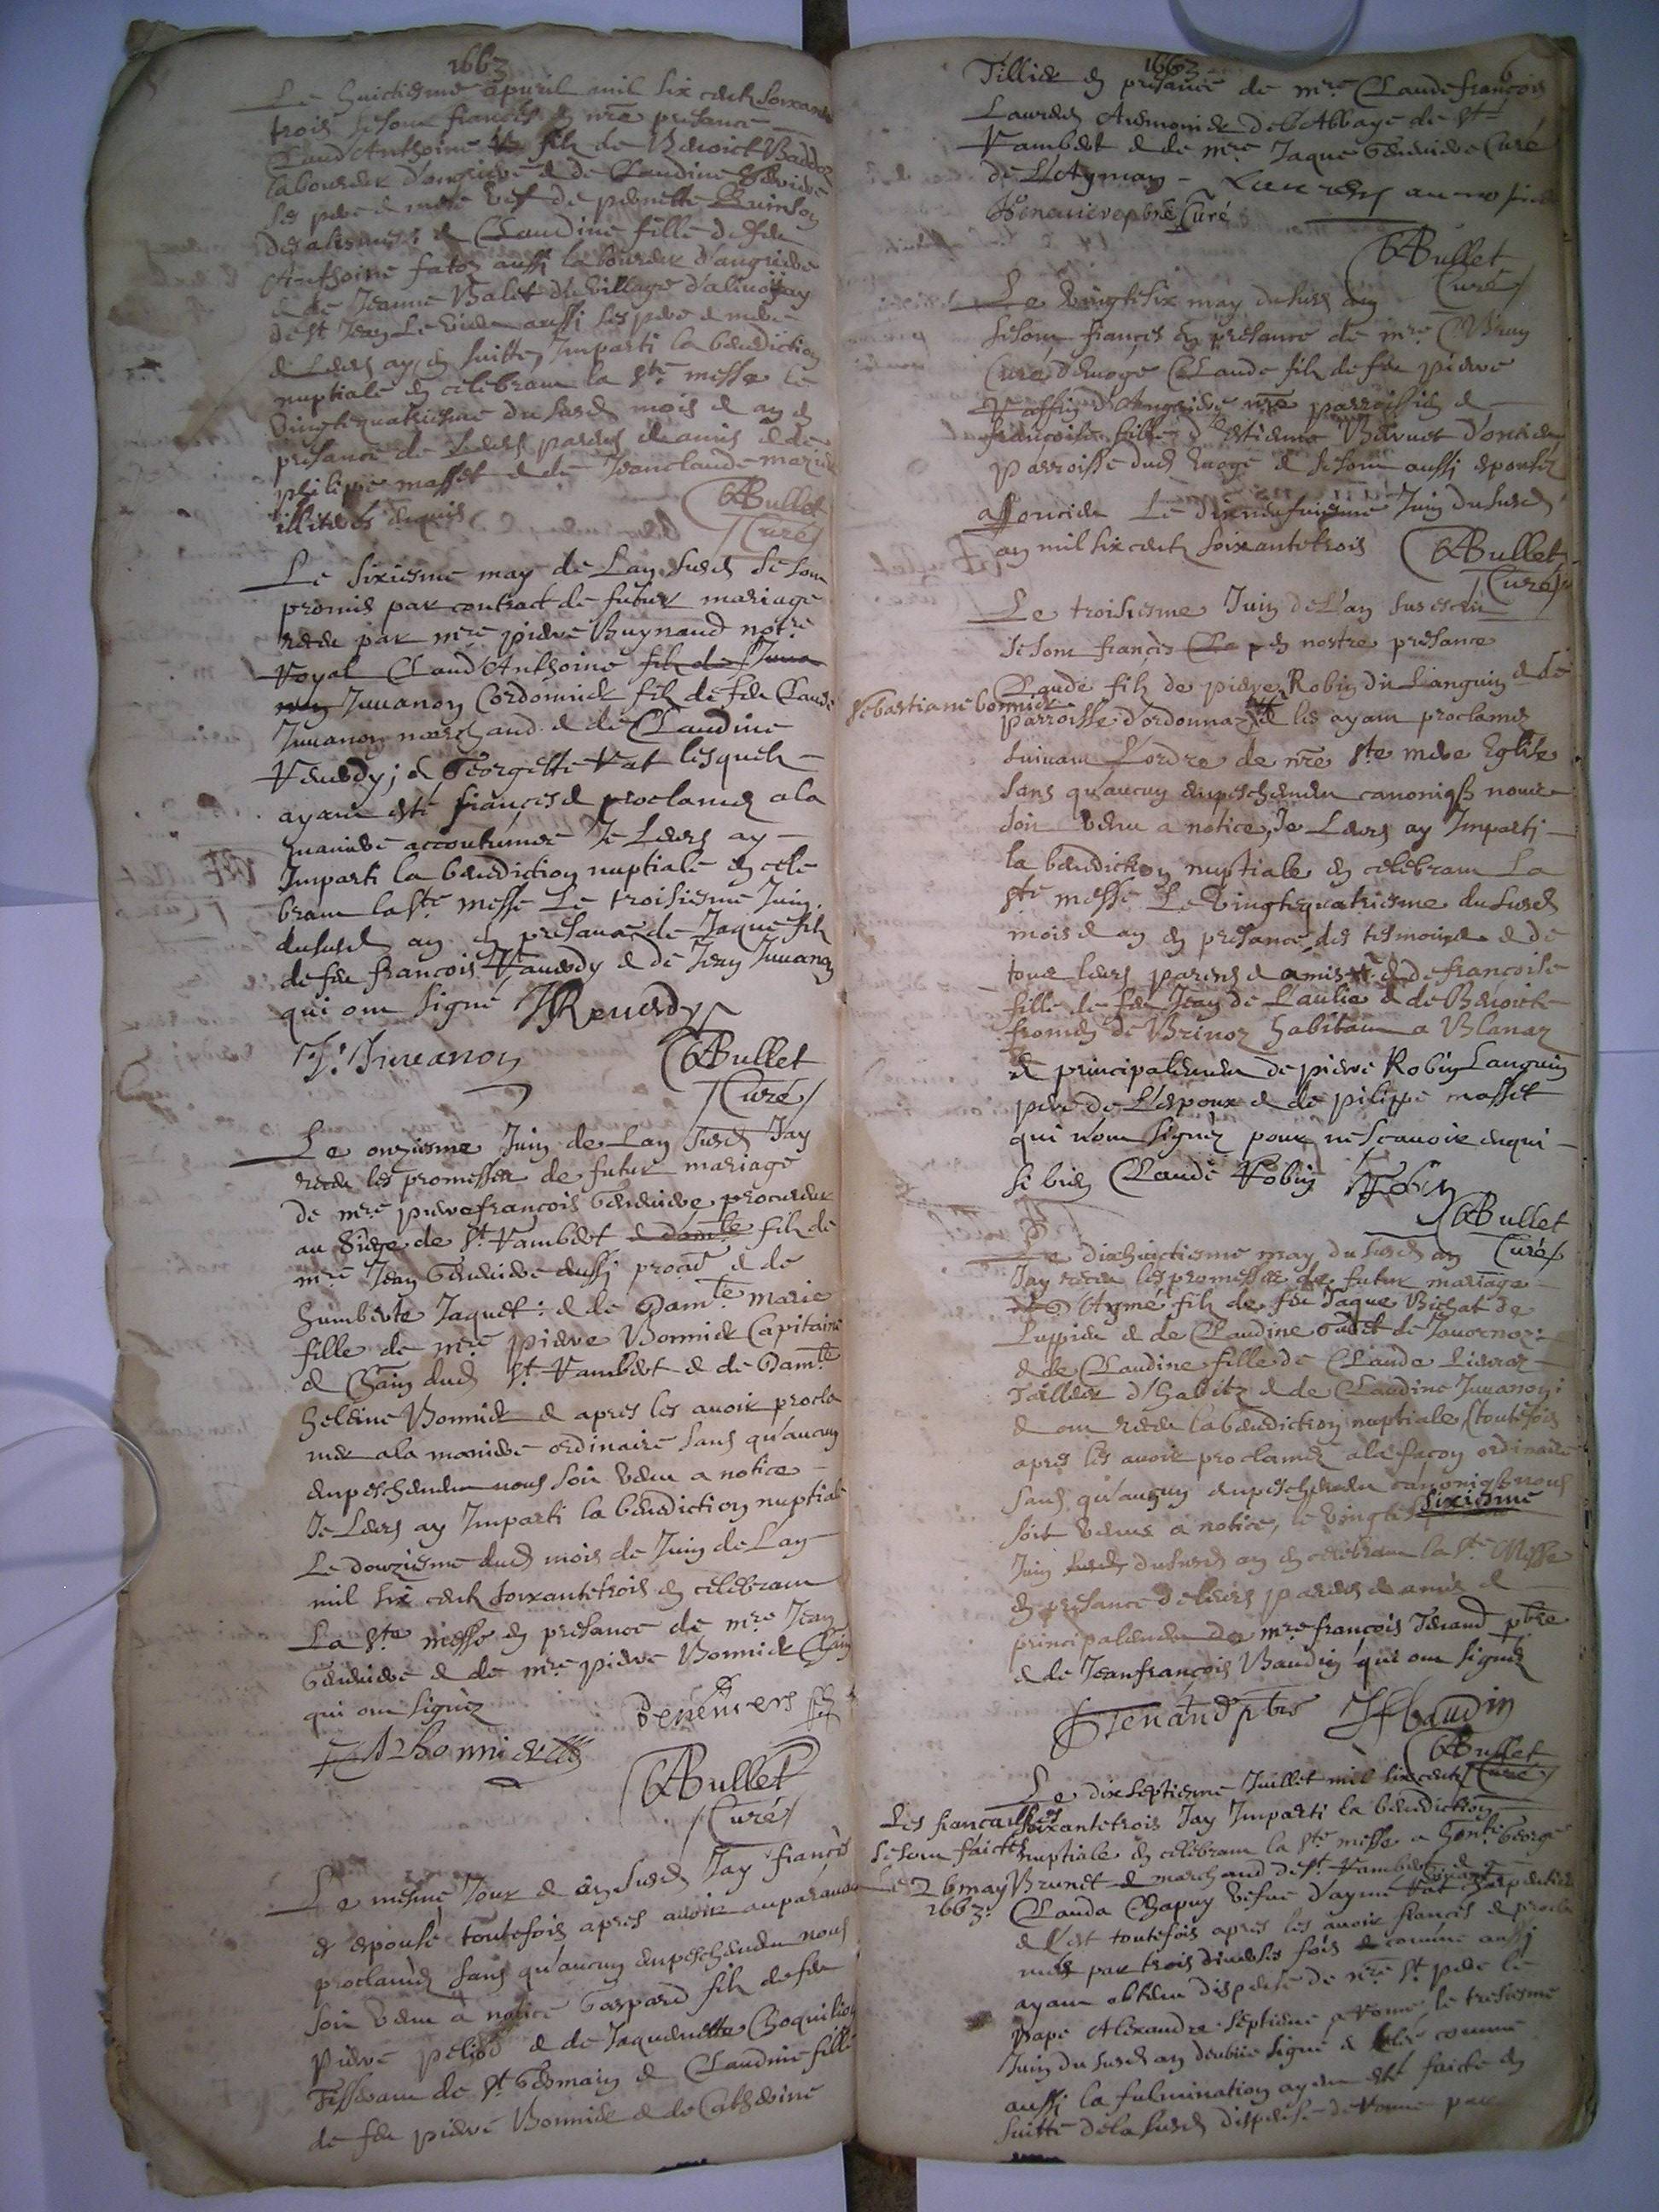 1663
Le huictiesme apuril mil six cent soixante
trois se sont francés en nre presance
Claud Anthoine filz de Benoict Baddoz
laboureur d'angrieve et de Claudine
ses pere et mere vef de pernette Guinson
des alismes et Claudine fille de feu
Anthoine fatoz aussi laboureur d'angrieve
et de Jeanne Balet du village d'alinoysay
de st Jean Le vieu aussi ses pere et mere
et Leurs ay en suitte, Imparti la benediction
nuptiale en celebrant la ste messe le
vingtequatriesme du susd mois et an en
presance de Leurs parens et amis et de
philippe masset et de Jeanclaude mazuir
illiterés enquis
CABullet
Curé
Le sixiesme may de Lan susd se sont
promis par contract de futur mariage
receu par mre pierre Buynand notre
Royal Claud Anthoine filz de Juua
non Juuanon Cordonnier filz de feu Claude
Juuanon marchand et de Claudine
Reuerdy; et Georgette Rat lesquelz
ayant esté fiancés et proclamez a la
maniere accoutumee Je Leurs ay
Imparti la benediction nuptiale en cele
brant la Ste messe Le troisiesme Juin
dususd an en presance de Jaque filz
de feu francois Raverdy et de Jean Juuanon
qui ont signé JReuerdy
J. Juuanon
CABullet
Curé
Le onziesme Juin de Lan susd Jay
receu les promesses de futur mariage
de mre pierrefrancois Geneuieve procureur
au siege de St Rambert et damlle filz de
mre Jean Geneuieve aussi procur et de
humberte Jaquet: et de Damlle marie
fille de mre pierre Bonnier Capitaine
et Chain dud St Rambert et de Damlle
heleine Bonnier et apres les auoir procla
mer a la maniere ordinaire sans qu'aucun
enpeschement nous soit venu a notice
Je Leurs ay Imparti la benediction nuptiale
Le douziesme dud mois de Juin de Lan
mil six cent soixantetrois en celebrant
La Ste messe en presance de mre Jean
Geneuieve et de mre pierre Bonnier Chain
qui ont signéz
CABullet
Curé
Le mesme Jour et an susd Jay francès
et espousé toutefois apres auoir auparauan
proclamez sans qu'aucun enpeschement nous
soit venu à notice Gaspard filz de feu
pierre peliod et de Jaquemette Choquilion
Tisserant de St Germain et Claudine fille
de feu pierre Bonnier et de Catherine
1663
Tillier en presance de mre Claude françois
Laurens Aumonier de l'Abbaye de St
Rambert et de mre Jaque Geneuieve Curé
de L'Ayman
Geneuieve pbre Curé
CABullet
Curé
Le vingtesix may dusus an
se sont francés en presance de mre CBray
Curé d'Euoge Claude filz de feu pierre
Raffin d'Angrieve nre parroissien et
francoise fille d'estienne Bernet d'oncieu
Parroisse dud Euoge et se sont aussi espousez
a Joncieu Le dixneufuiesme Juin du susd
an mil six cent soixantetrois
CABullet
Curé
Le troisiesme Juin de L'an sus escrit
se sont francés en nostre presance
Claude filz de pierre Robin dit Languin et de
Sebastiane bonnier
parroisse d'ordonnaz et les ayant proclamez
suivant L'ordre de nre Ste mere Eglise
sans qu'aucun enpeschement canoniqs nous
soit venu a notice, Je Leurs ay Imparti
la benediction nuptiale en celebrant La
Ste messe Le vingtequatriesme du susd
mois et an en presance des tesmoins et de
tous leurs parens et amis et de francoise
fille de feu Jean de Laulie et de Benoicte
fromen de Brinoz habitant a Blanaz
et principalement de pierre Robin Languin
pere de L'espoux et de pilippe masset
qui n'ont signéz pour ne scauoir enqui
si bien Claude Robin Robin
CABullet
Curé
Le dixhuictiesme may du susd an
Jay receu les promesses de futur mariage
d'Aymé filz de feu Jaque Bichat de
Luppieu et de Claudine Gudet de Jouornoz:
et de Claudine fille de Claude Lieuraz
Tailleur d'habitz et de Claudine Juuanon:
et ont receu la benediction nuptiale toutefois
apres les auoir proclamez a la façon ordinaire
sans qu'aucun enpeschement canoniqs nous
soit venus a notice, le vingte sixiesme
Juin dususd an en celebrant la Ste Messe
en presance de leurs parens et amis et
principalement de mre francois Tenand pbre
et de Jeanfrancois Baudin qui ont signéz
FTenand pbre JFbaudin
CABullet
Curé
Le dixseptiesme Juillet mil six cent
soixantetrois Jay Imparti la benediction
nuptiale en celebrant la Ste messe a honte George
Brunet marchand de St Rambert et a
Les francailles
se sont faictes
le 26 may
1663:
Clauda Chapuy vefue d'aymé Rat
et c'est toutefois apres les auoir francés et procla
més par trois diuerses fois et comme aussi
ayant obtenu dispense de nre St pere le
Pape Alexandre septieme a Rome, le tresiesme
Juin du susd an deubue signé et comme
aussi la fulmination ayant esté faicte en
suitte de la susd dispense de Rome par